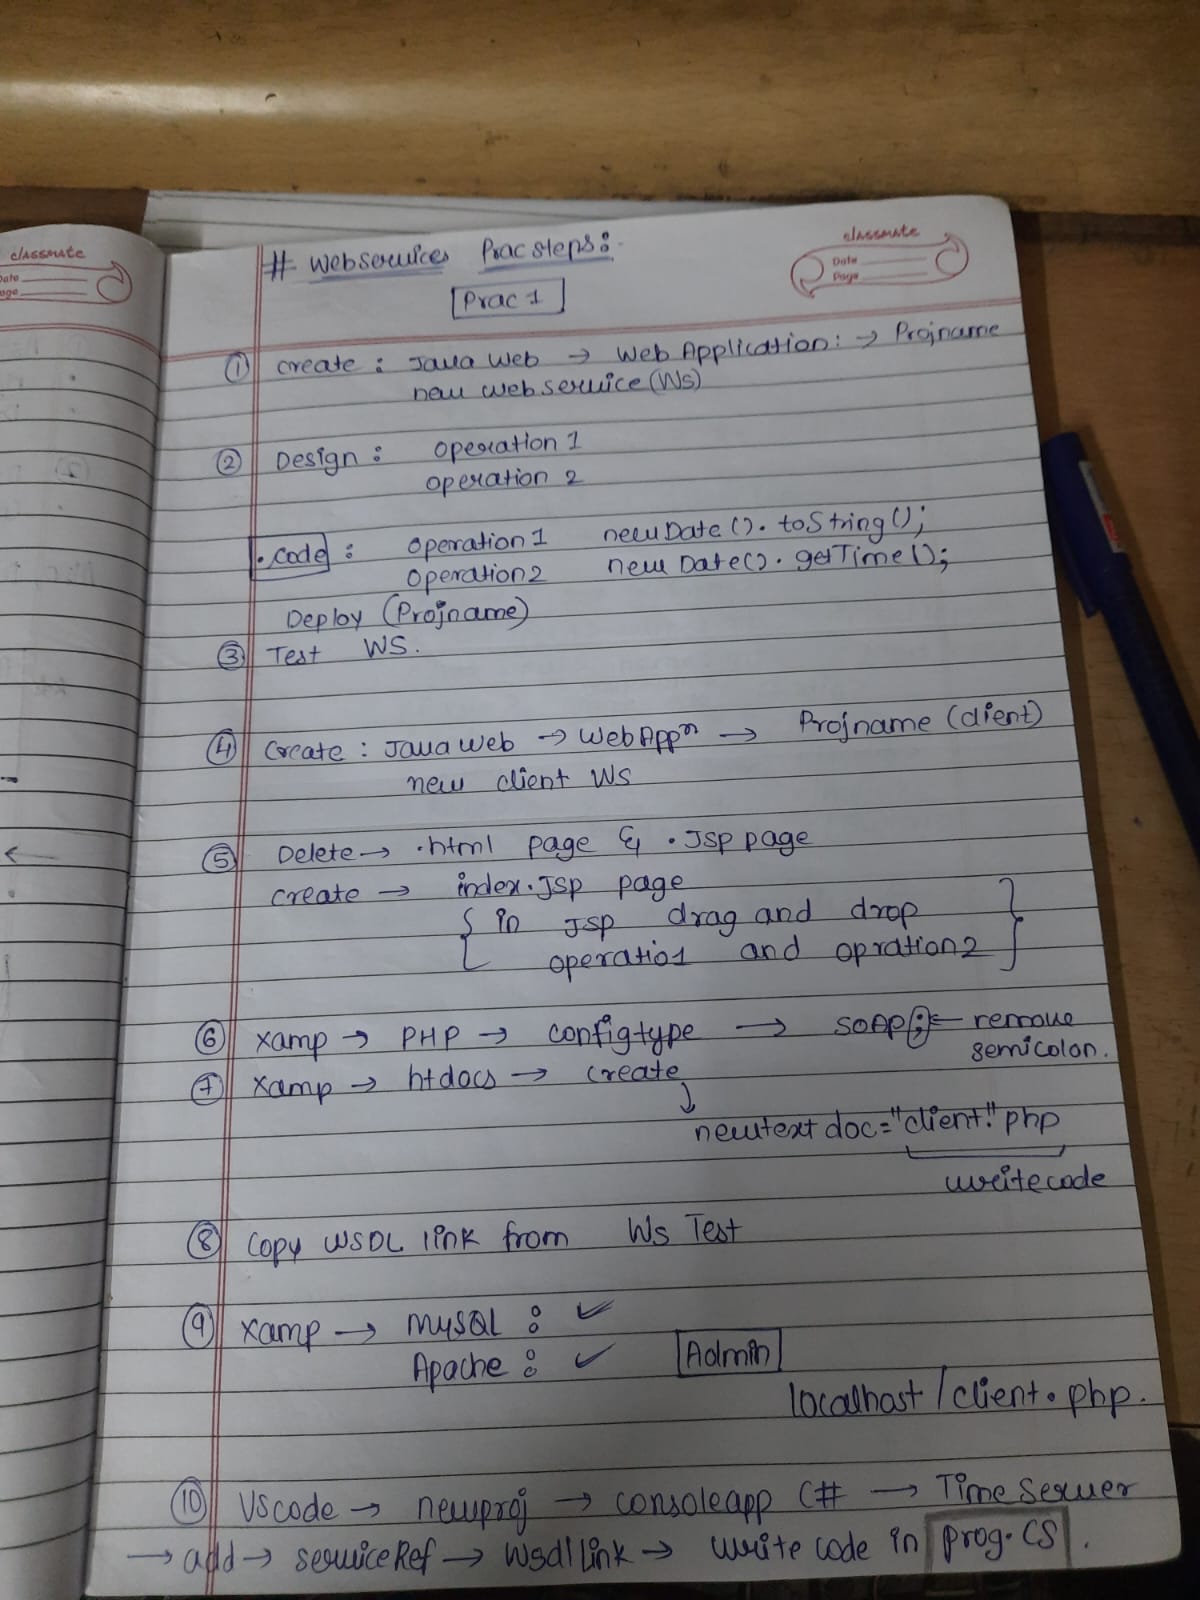 classmate
Date
Page
classmate
Date
Page
# Webservices Prac steps:-
Prac 1
① Create : Java Web → Web Application: → Projname
new web service (WS)
② Design : operation 1
operation 2
.Code : operation 1 new Date (). toString ();
operation 2 new Date(). getTime ();
Deploy (Projname)
③ Test WS.
④ Create : Java web → Web Appⁿ → Projname (client)
new client WS
⑤ Delete → .html page & .Jsp page
create → index.Jsp page
{ in Jsp drag and drop
operatio1 and opration2 }
⑥ Xamp → PHP → configtype → SOAP; ← remove
semicolon.
⑦ Xamp → htdocs → create
↳ newtext doc="client." php
write code
⑧ Copy WSDL link from Ws Test
⑨ Xamp → MySQL : ✓
Apache : ✓ Admin
localhost / client.php.
⑩ VScode → newproj → consoleapp C# → Time Server
→ add → serviceRef → Wsdl Link → write code in prog.CS .